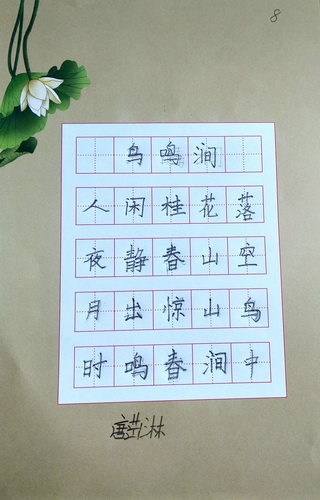 8
鸟鸣涧
人闲桂花落
夜静春山空
月出惊山鸟
时鸣春涧中